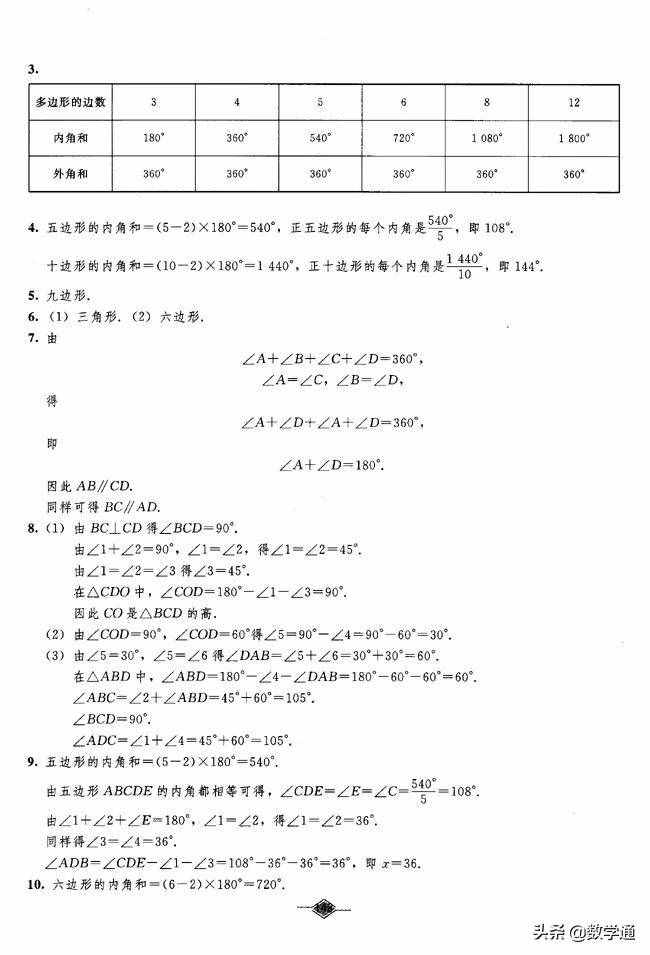 3.
多边形的边数 3 4 5 6 8 12
内角和 180° 360° 540° 720° 1 080° 1 800°
外角和 360° 360° 360° 360° 360° 360°
4. 五边形的内角和=(5-2)×180°=540°，正五边形的每个内角是540°/5，即 108°.
十边形的内角和=(10-2)×180°=1 440°，正十边形的每个内角是1 440°/10，即 144°.
5. 九边形.
6. (1) 三角形. (2) 六边形.
7. 由
∠A+∠B+∠C+∠D=360°，
∠A=∠C，∠B=∠D，
得
∠A+∠D+∠A+∠D=360°，
即
∠A+∠D=180°.
因此 AB∥CD.
同样可得 BC∥AD.
8. (1) 由 BC⊥CD 得∠BCD=90°.
由∠1+∠2=90°，∠1=∠2，得∠1=∠2=45°.
由∠1=∠2=∠3 得∠3=45°.
在△CDO 中，∠COD=180°-∠1-∠3=90°.
因此 CO 是△BCD 的高.
(2) 由∠COD=90°，∠COD=60°得∠5=90°-∠4=90°-60°=30°.
(3) 由∠5=30°，∠5=∠6 得∠DAB=∠5+∠6=30°+30°=60°.
在△ABD 中，∠ABD=180°-∠4-∠DAB=180°-60°-60°=60°.
∠ABC=∠2+∠ABD=45°+60°=105°.
∠BCD=90°.
∠ADC=∠1+∠4=45°+60°=105°.
9. 五边形的内角和=(5-2)×180°=540°.
由五边形 ABCDE 的内角都相等可得，∠CDE=∠E=∠C=540°/5=108°.
由∠1+∠2+∠E=180°，∠1=∠2，得∠1=∠2=36°.
同样得∠3=∠4=36°.
∠ADB=∠CDE-∠1-∠3=108°-36°-36°=36°，即 x=36.
10. 六边形的内角和=(6-2)×180°=720°.
头条 @数学通